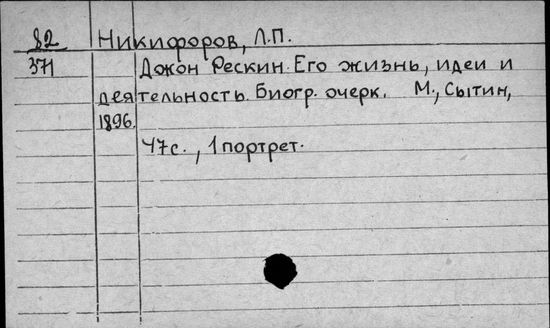 82 Никифоров, Л.П.
371 Джон Рескин. Его жизнь, идеи и
деятельность. Биогр. очерк. М., Сытин,
1896.
47с., 1 портрет.